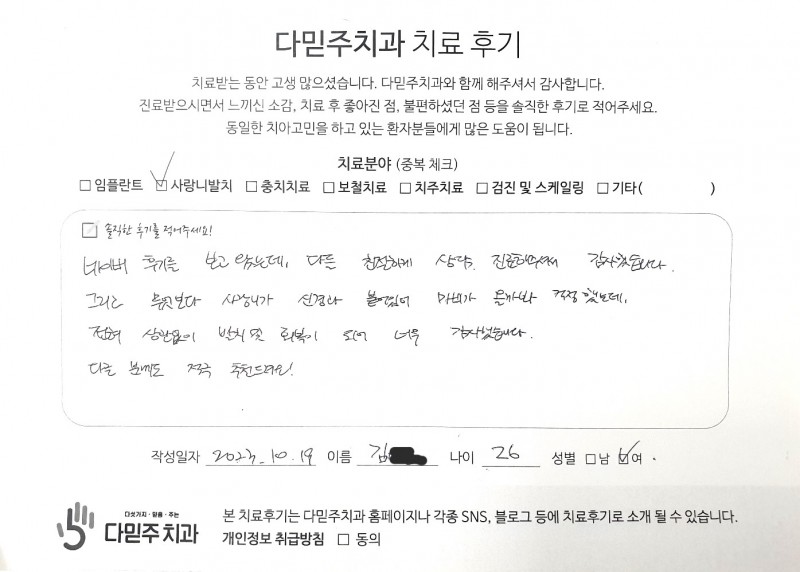 다믿주치과 치료 후기
치료받는 동안 고생 많으셨습니다. 다믿주치과와 함께 해주셔서 감사합니다.
진료받으시면서 느끼신 소감, 치료 후 좋아진 점, 불편하셨던 점 등을 솔직한 후기로 적어주세요.
동일한 치아고민을 하고 있는 환자분들에게 많은 도움이 됩니다.
치료분야 (중복 체크)
임플란트 사랑니발치 충치치료 보철치료 치주치료 검진 및 스케일링 기타( )
솔직한 후기를 적어주세요!
네이버 후기를 보고 왔는데, 다들 친절하게 상담, 진료해주셔서 감사했습니다.
그리고 무엇보다 사랑니가 신경과 붙어있어 마비가 올까봐 걱정했는데,
전혀 상관없이 발치 및 회복이 되어 너무 감사했습니다.
다른 분께도 적극 추천드려요!
작성일자 2023.10.19 이름 김 나이 26 성별 남 여
다섯가지·믿음·주는
다믿주치과
본 치료후기는 다믿주치과 홈페이지나 각종 SNS, 블로그 등에 치료후기로 소개 될 수 있습니다.
개인정보 취급방침 동의